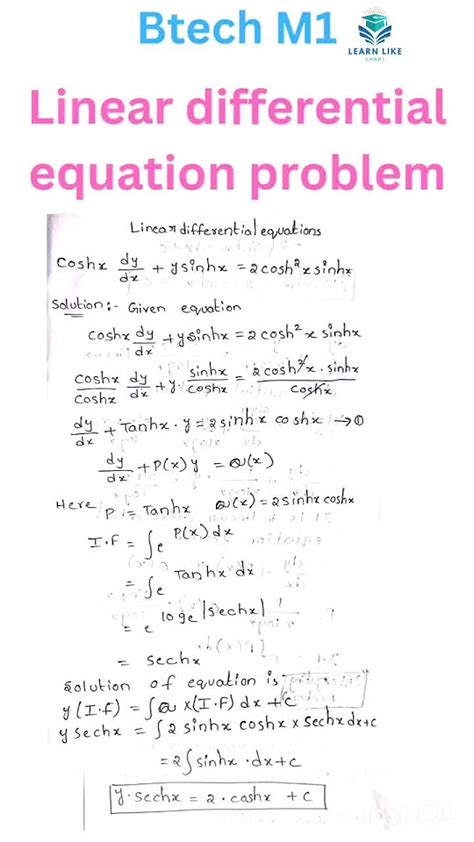 Btech M1
LEARN LIKE
SMART
Linear differential
equation problem
Linear differential equations
Coshx dy/dx + y sinhx = 2 cosh²x sinhx
Solution :- Given equation
coshx dy/dx + y sinhx = 2 cosh² x sinhx
coshx/coshx dy/dx + y. sinhx/coshx = 2 cosh²x . sinhx/coshx
dy/dx + Tanhx . y = 2 sinh x coshx → ①
dy/dx + P(x) y = Q(x)
Here P = Tanhx Q(x) = 2 sinhx coshx
I.F = ∫e P(x) dx
= ∫e Tanhx dx
= e loge |sechx|
= sechx
Solution of equation is
y (I.f) = ∫Q x (I.F) dx + C
y sechx = ∫2 sinhx coshx x sechx dx + c
= 2∫sinhx . dx + c
y. sechx = 2 . coshx + c